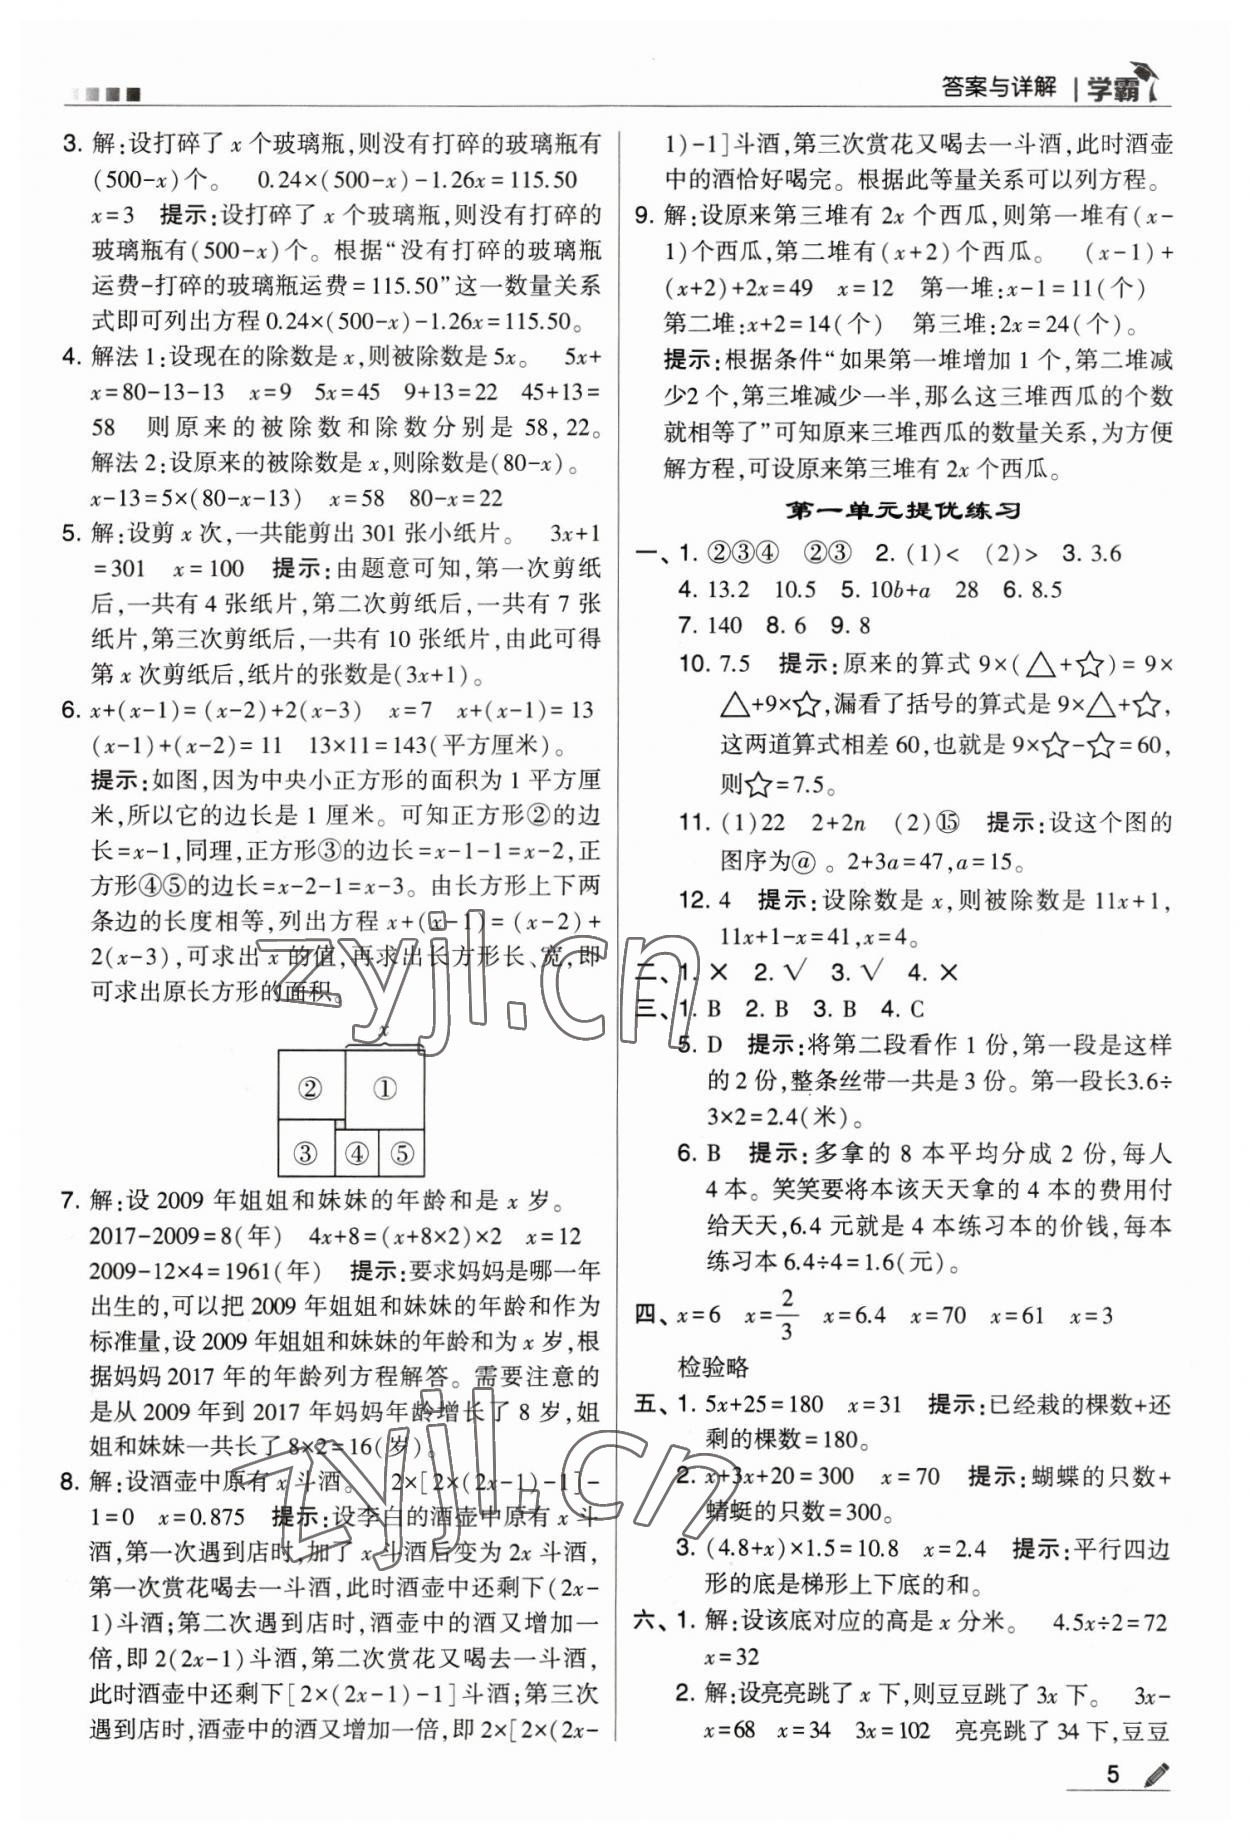 答案与详解 | 学霸
3. 解:设打碎了 x 个玻璃瓶,则没有打碎的玻璃瓶有
(500-x)个。 0.24×(500-x)-1.26x=115.50
x=3 提示:设打碎了 x 个玻璃瓶,则没有打碎的
玻璃瓶有(500-x)个。根据“没有打碎的玻璃瓶
运费-打碎的玻璃瓶运费=115.50”这一数量关系
式即可列出方程0.24×(500-x)-1.26x=115.50。
4. 解法1:设现在的除数是x,则被除数是5x。 5x+
x=80-13-13 x=9 5x=45 9+13=22 45+13=
58 则原来的被除数和除数分别是58,22。
解法2:设原来的被除数是x,则除数是(80-x)。
x-13=5×(80-x-13) x=58 80-x=22
5. 解:设剪 x 次,一共能剪出301张小纸片。 3x+1
=301 x=100 提示:由题意可知,第一次剪纸
后,一共有4张纸片,第二次剪纸后,一共有7张
纸片,第三次剪纸后,一共有10张纸片,由此可得
第x次剪纸后,纸片的张数是(3x+1)。
6. x+(x-1)=(x-2)+2(x-3) x=7 x+(x-1)=13
(x-1)+(x-2)=11 13×11=143(平方厘米)。
提示:如图,因为中央小正方形的面积为1平方厘
米,所以它的边长是1厘米。可知正方形②的边
长=x-1,同理,正方形③的边长=x-1-1=x-2,正
方形④⑤的边长=x-2-1=x-3。由长方形上下两
条边的长度相等,列出方程x+(x-1)=(x-2)+
2(x-3),可求出x的值,再求出长方形长、宽,即
可求出原长方形的面积。
x
② ①
③ ④ ⑤
7. 解:设2009年姐姐和妹妹的年龄和是x岁。
2017-2009=8(年) 4x+8=(x+8×2)×2 x=12
2009-12×4=1961(年) 提示:要求妈妈是哪一年
出生的,可以把2009年姐姐和妹妹的年龄和作为
标准量,设2009年姐姐和妹妹的年龄和为x岁,根
据妈妈2017年的年龄列方程解答。需要注意的
是从2009年到2017年妈妈年龄增长了8岁,姐
姐和妹妹一共长了8×2=16(岁)。
8. 解:设酒壶中原有x斗酒。 2×[2×(2x-1)-1]-
1=0 x=0.875 提示:设李白的酒壶中原有x斗
酒,第一次遇到店时,加了x斗酒后变为2x斗酒,
第一次赏花喝去一斗酒,此时酒壶中还剩下(2x-
1)斗酒;第二次遇到店时,酒壶中的酒又增加一
倍,即2(2x-1)斗酒,第二次赏花又喝去一斗酒,
此时酒壶中还剩下[2×(2x-1)-1]斗酒;第三次
遇到店时,酒壶中的酒又增加一倍,即2×[2×(2x-
1)-1]斗酒,第三次赏花又喝去一斗酒,此时酒壶
中的酒恰好喝完。根据此等量关系可以列方程。
9. 解:设原来第三堆有2x个西瓜,则第一堆有(x-
1)个西瓜,第二堆有(x+2)个西瓜。 (x-1)+
(x+2)+2x=49 x=12 第一堆:x-1=11(个)
第二堆:x+2=14(个) 第三堆:2x=24(个)。
提示:根据条件“如果第一堆增加1个,第二堆减
少2个,第三堆减少一半,那么这三堆西瓜的个数
就相等了”可知原来三堆西瓜的数量关系,为方便
解方程,可设原来第三堆有2x个西瓜。
第一单元提优练习
一、1. ②③④ ②③ 2. (1)< (2)> 3. 3.6
4. 13.2 10.5 5. 10b+a 28 6. 8.5
7. 140 8. 6 9. 8
10. 7.5 提示:原来的算式9×(△+☆)=9×
△+9×☆,漏看了括号的算式是9×△+☆,
这两道算式相差60,也就是9×☆-☆=60,
则☆=7.5。
11. (1)22 2+2n (2)⑮ 提示:设这个图的
图序为ⓐ。2+3a=47,a=15。
12. 4 提示:设除数是x,则被除数是11x+1,
11x+1-x=41,x=4。
二、1. × 2. √ 3. √ 4. ×
三、1. B 2. B 3. B 4. C
5. D 提示:将第二段看作1份,第一段是这样
的2份,整条丝带一共是3份。第一段长3.6÷
3×2=2.4(米)。
6. B 提示:多拿的8本平均分成2份,每人
4本。笑笑要将本该天天拿的4本的费用付
给天天,6.4元就是4本练习本的价钱,每本
练习本6.4÷4=1.6(元)。
四、x=6 x=2/3 x=6.4 x=70 x=61 x=3
检验略
五、1. 5x+25=180 x=31 提示:已经栽的棵数+还
剩的棵数=180。
2. x+3x+20=300 x=70 提示:蝴蝶的只数+
蜻蜓的只数=300。
3. (4.8+x)×1.5=10.8 x=2.4 提示:平行四边
形的底是梯形上下底的和。
六、1. 解:设该底对应的高是x分米。 4.5x÷2=72
x=32
2. 解:设亮亮跳了x下,则豆豆跳了3x下。 3x-
x=68 x=34 3x=102 亮亮跳了34下,豆豆
5
zyjl.cn
zyjl.cn